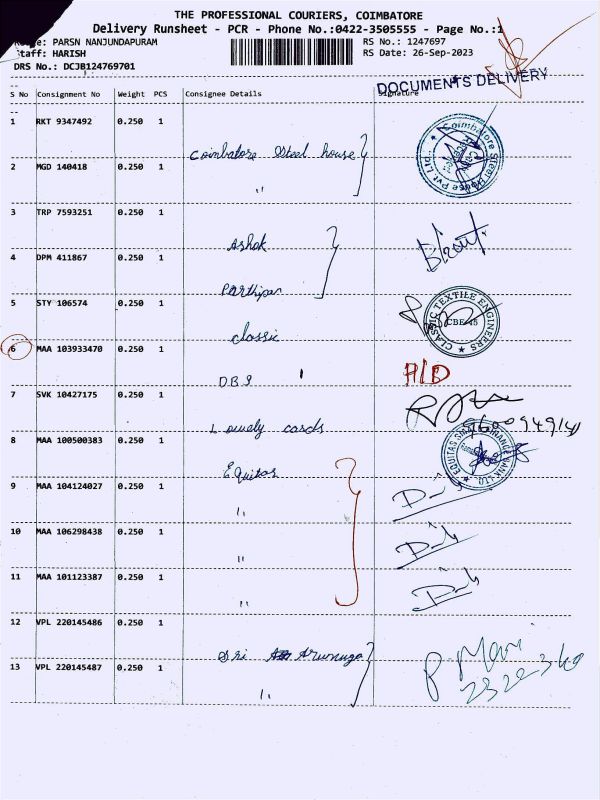 THE PROFESSIONAL COURIERS, COIMBATORE
Delivery Runsheet - PCR - Phone No.:0422-3505555 - Page No.:1
PARSN NANJUNDAPURAM RS No.: 1247697
Staff: HARISH RS Date: 26-Sep-2023
DRS No.: DCJB124769701
DOCUMENTS DELIVERY
S No Consignment No Weight PCS Consignee Details Signature
1 RKT 9347492 0.250 1
Coimbatore Steel house
2 MGD 140418 0.250 1
"
3 TRP 7593251 0.250 1
Ashok
4 DPM 411867 0.250 1
Parthipan
5 STY 106574 0.250 1
classic
CLASSIC TEXTILE ENGINEERS
CBE-45
6 MAA 103933470 0.250 1
DBS
7 SVK 10427175 0.250 1
Lovely cards
8 MAA 100500383 0.250 1
Equitas
9 MAA 104124027 0.250 1
"
10 MAA 106298438 0.250 1
"
11 MAA 101123387 0.250 1
"
12 VPL 220145486 0.250 1
Sri Arumuga
13 VPL 220145487 0.250 1
"
P. Mani